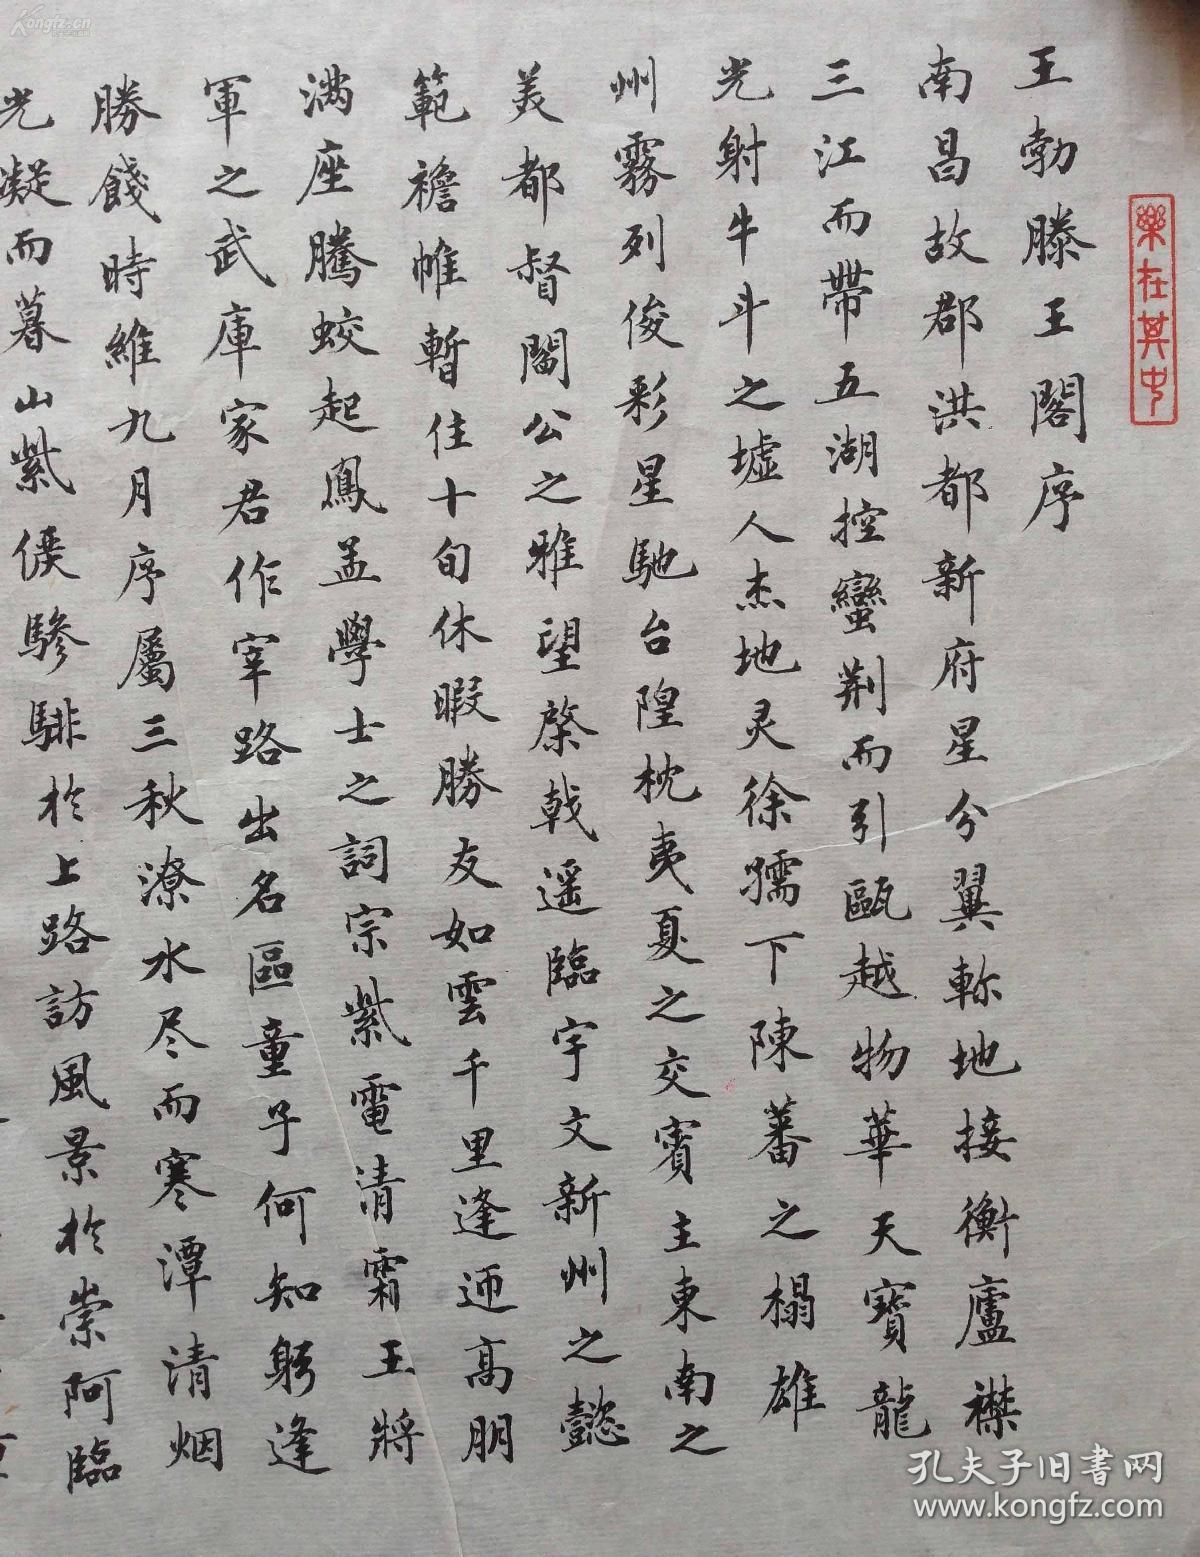 樂在其中
王勃滕王閣序
南昌故郡洪都新府星分翼軫地接衡廬襟
三江而帶五湖控蠻荆而引甌越物華天寶龍
光射牛斗之墟人杰地灵徐孺下陳蕃之榻雄
州霧列俊彩星馳台隍枕夷夏之交賓主東南之
美都督閻公之雅望棨戟遥臨宇文新州之懿
範襜帷暫住十旬休暇勝友如雲千里逢迊高朋
滿座騰蛟起鳳孟學士之詞宗紫電清霜王將
軍之武庫家君作宰路出名區童子何知躬逢
勝餞時維九月序屬三秋潦水尽而寒潭清烟
光凝而暮山紫儼驂騑於上路訪風景於崇阿臨
Kongfz.cn
孔夫子旧書网
www.kongfz.com